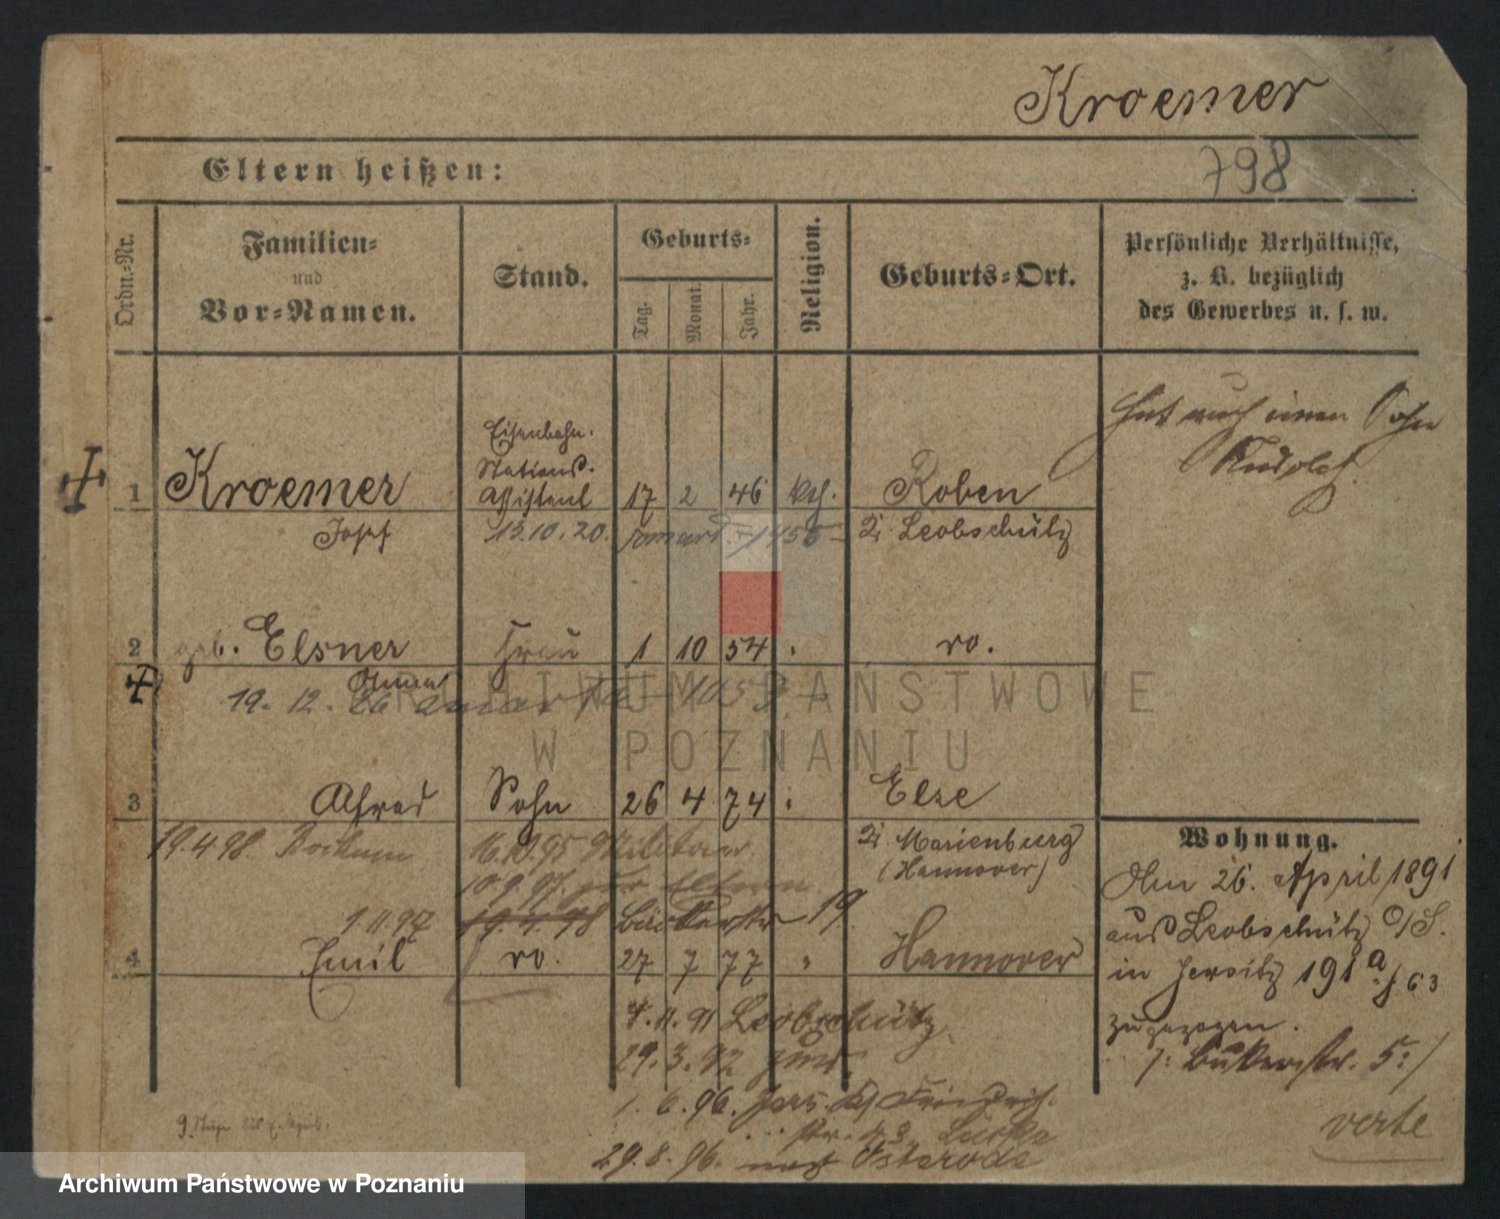 Kroemer
798
Eltern heißen:
Ordn.-Nr.
Familien-
und
Vor-Namen.
Stand.
Geburts-
Tag.
Monat.
Jahr.
Religion.
Geburts-Ort.
Persönliche Verhältnisse,
z. B. bezüglich
des Gewerbes u. s. w.
Hat auch einen Sohn
Rudolf
Eisenbahn-
Stations-
1 Kroemer Assistent 17 2 46 kth. Roben
Josef 13.10.20. 1455 Kr. Leobschütz
2 geb. Elsner Frau 1 10 54 " ro.
19. 12. 26
3 Alfred Sohn 26 4 74 " Else
19.4.98. Bochum 16.10.95 Militär Kr. Marienburg
10.9.97. zur Eltern (Hannover)
1.11.97 19.4.98 Bäckerstr 19
4 Emil ro. 27 7 77 " Hannover
7.11.91 Leobschütz
29.3.92
1.6.96. Jers. Friedrich-
str.
29.8.96. nach Osterode
Wohnung.
Am 26. April 1891
aus Leobschütz O/S.
in Jersitz 191 a
zugezogen.
Bäckerstr. 5:/
verte
ARCHIWUM PAŃSTWOWE
W POZNANIU
Archiwum Państwowe w Poznaniu